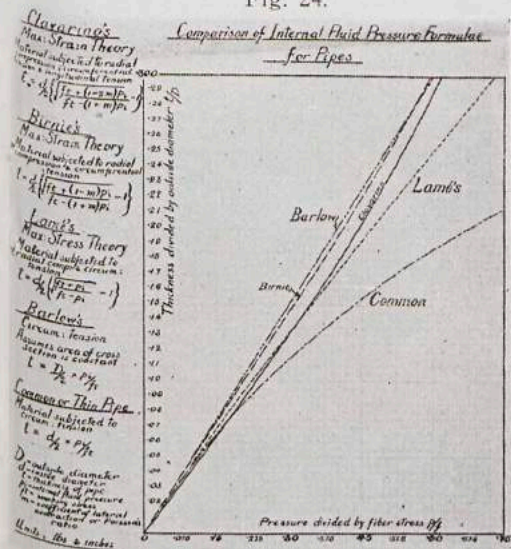 Fig. 24.
Comparison of Internal Fluid Pressure Formulae
for Pipes
Clavarino's
Max: Strain Theory
Material subjected to radial
compression circumferential
tension & longitudinal tension
t = d/2 {√(ft + (1-2m)p₁ / ft - (1+m)p₁) - 1}
Birnie's
Max: Strain Theory
Material subjected to radial
compression & circumferential
tension
t = d/2 {√(ft + (1-m)p₁ / ft - (1+m)p₁) - 1}
Lamé's
Max: Stress Theory
Material subjected to
radial comp: & circum:
tension
t = d/2 {√(ft + p₁ / ft - p₁) - 1}
Barlow's
Circum: Tension
Assumes area of cross
section is constant
t = D/2 × p₁/ft
Common or Thin Pipe
Material subjected to
circum: tension
t = d/2 × p₁/ft
D = outside diameter
d = inside diameter
t = thickness of pipe
p₁ = internal fluid pressure
ft = working stress
m = coefficient of lateral
contraction or Poisson's
ratio
Units: lbs & inches
Thickness divided by outside diameter t/D
Barlow
Birnie
Clavarino
Lamé's
Common
Pressure divided by fiber stress p₁/ft